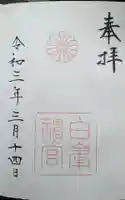 奉拝
白峯
神宮
令和三年三月十四日